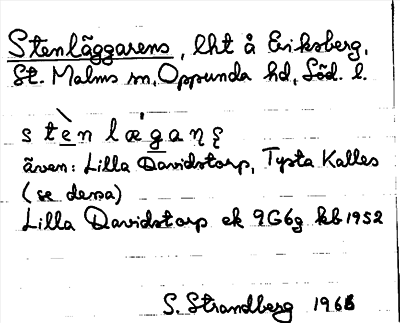 Stenläggarens, lht å Eriksberg,
St. Malms sn, Oppunda hd, Söd. l.
stèn lǽgaŋ
även: Lilla Davidstorp, Tysta Kalles
(se dessa)
Lilla Davidstorp ek 9G6g kb 1952
S. Strandberg 1968